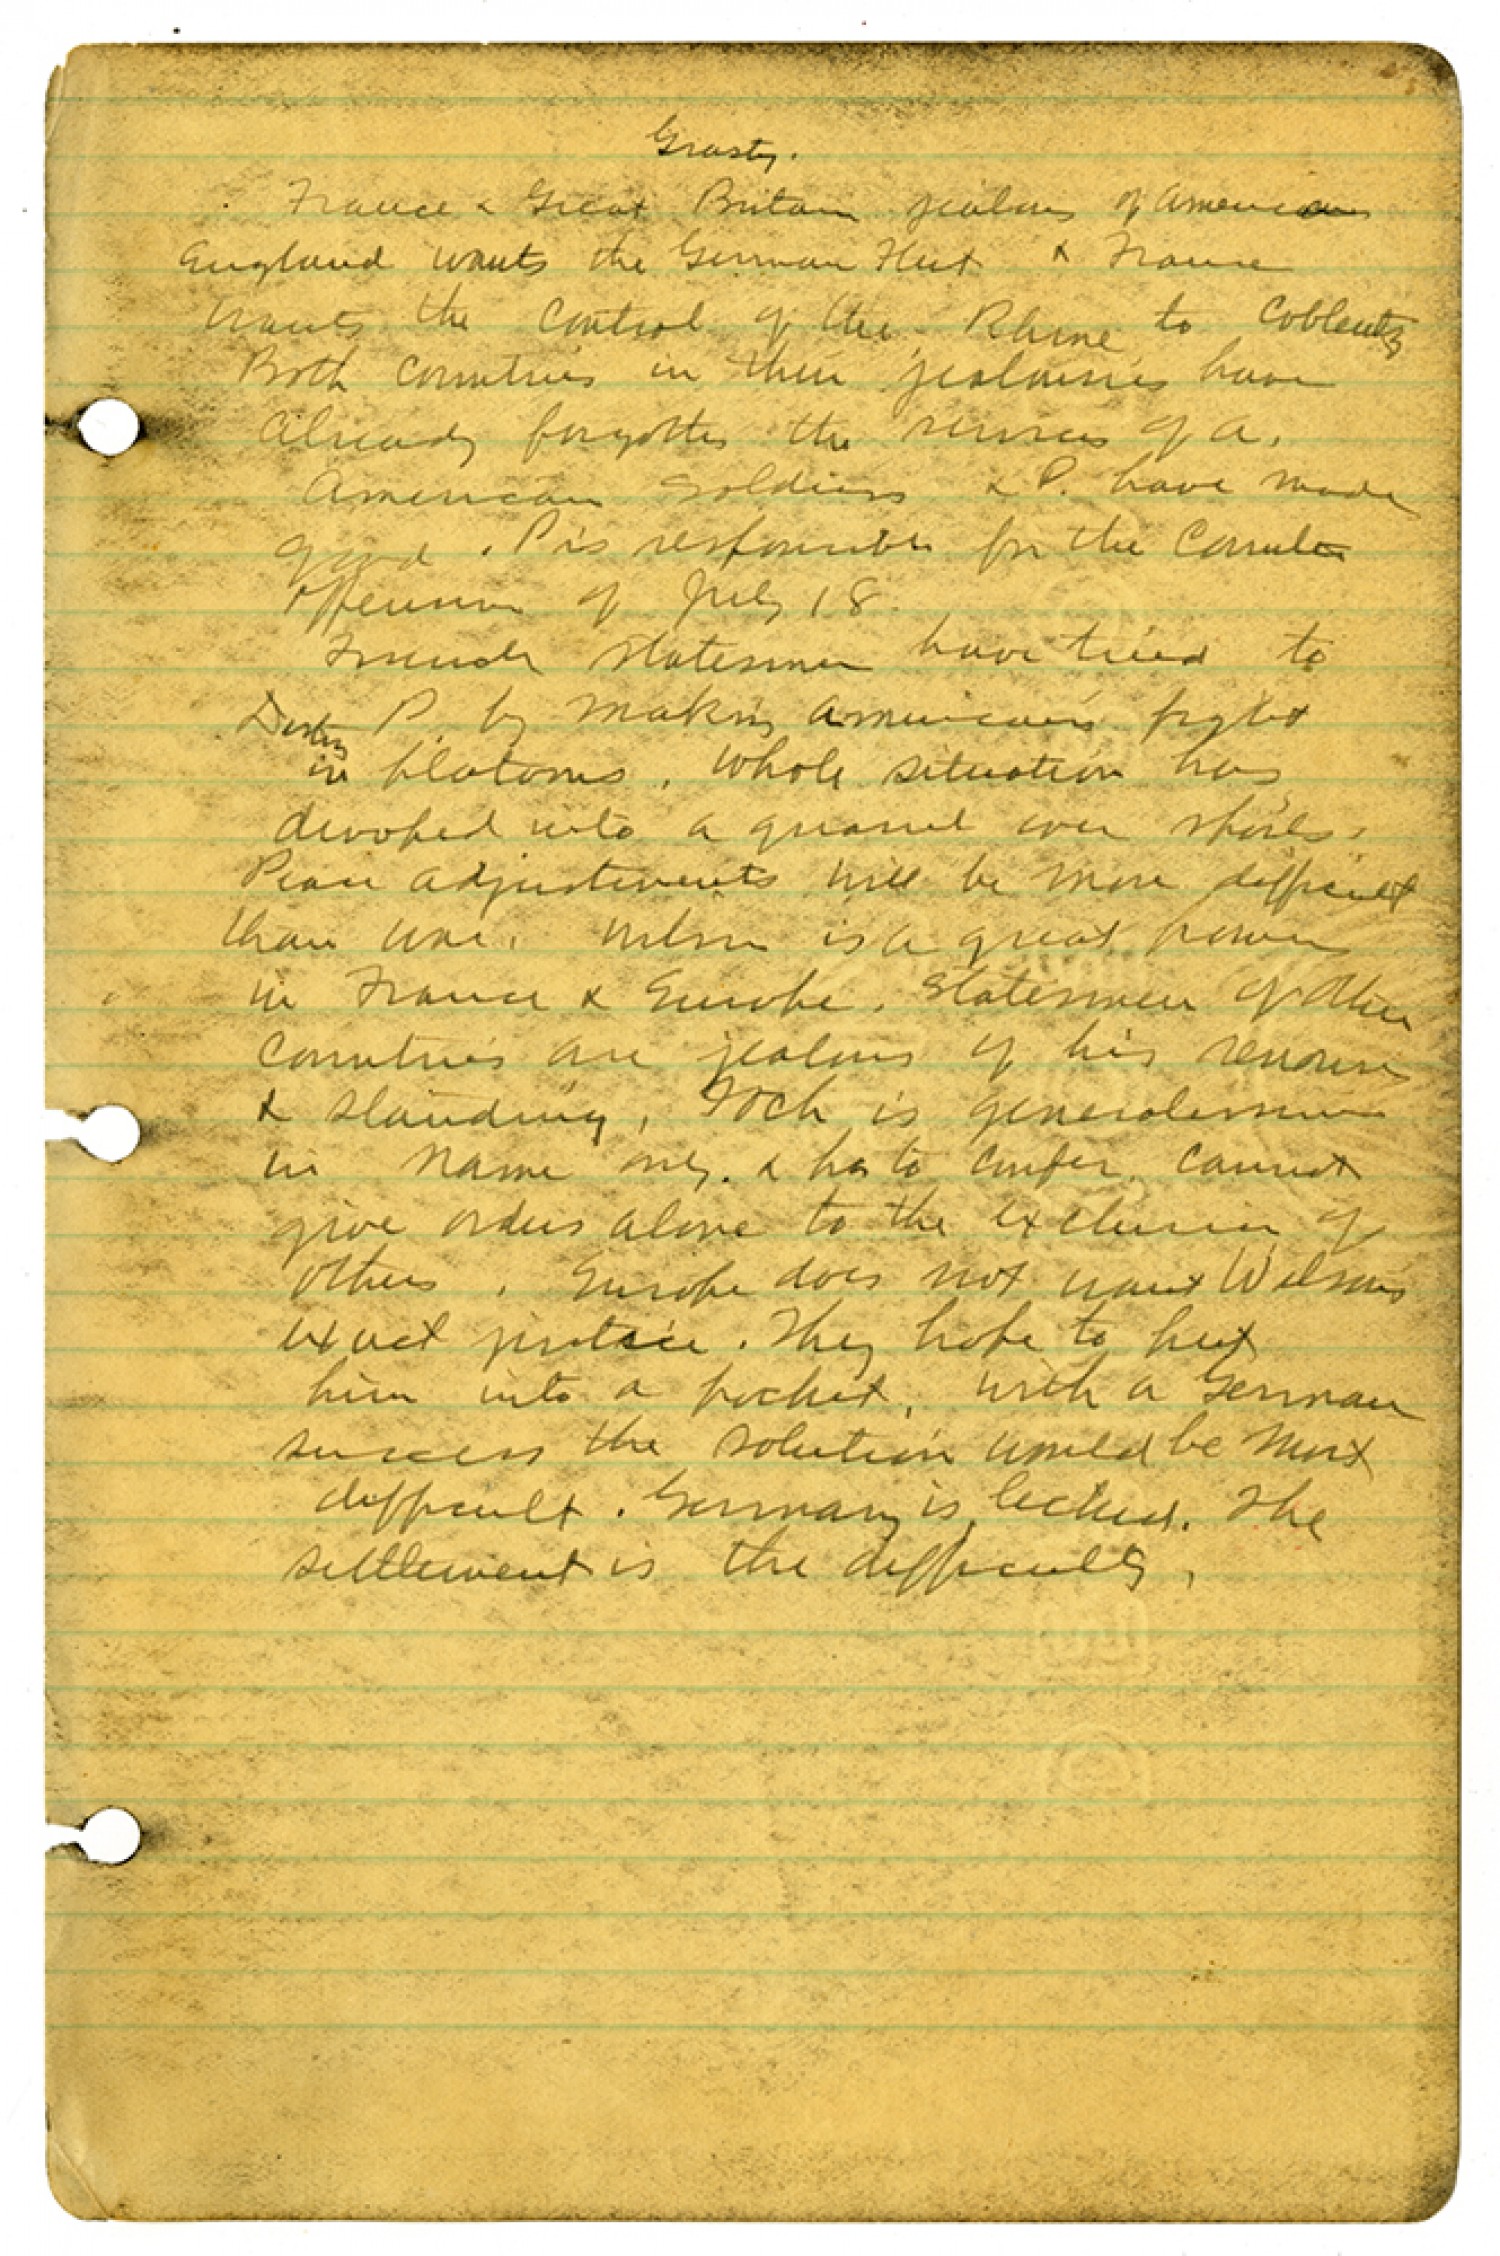 Grasty.
France & Great Britain jealous of Americans
England wants the German Fleet & France
wants the control of the Rhine to Coblentz
Both countries in their jealousies have
already forgotten the services of A.
American soldiers & P. have made
good. P is responsible for the counter
offensive of July 18.
French statesmen have tried to
Destroy P. by making Americans fight
in platoons. Whole situation has
devoped into a quarrel over spoils.
Peace adjustments will be more difficult
than war. Wilson is a great power
in France & Europe. Statesmen of other
countries are jealous of his renown
& standing, Foch is generalissimo
in name only. & has to confer, cannot
give orders alone to the exclusion of
others. Europe does not want Wilsons
exact justice. They hope to put
him into a pocket, with a German
success the solution would be most
difficult. Germany is licked. The
settlement is the difficulty.